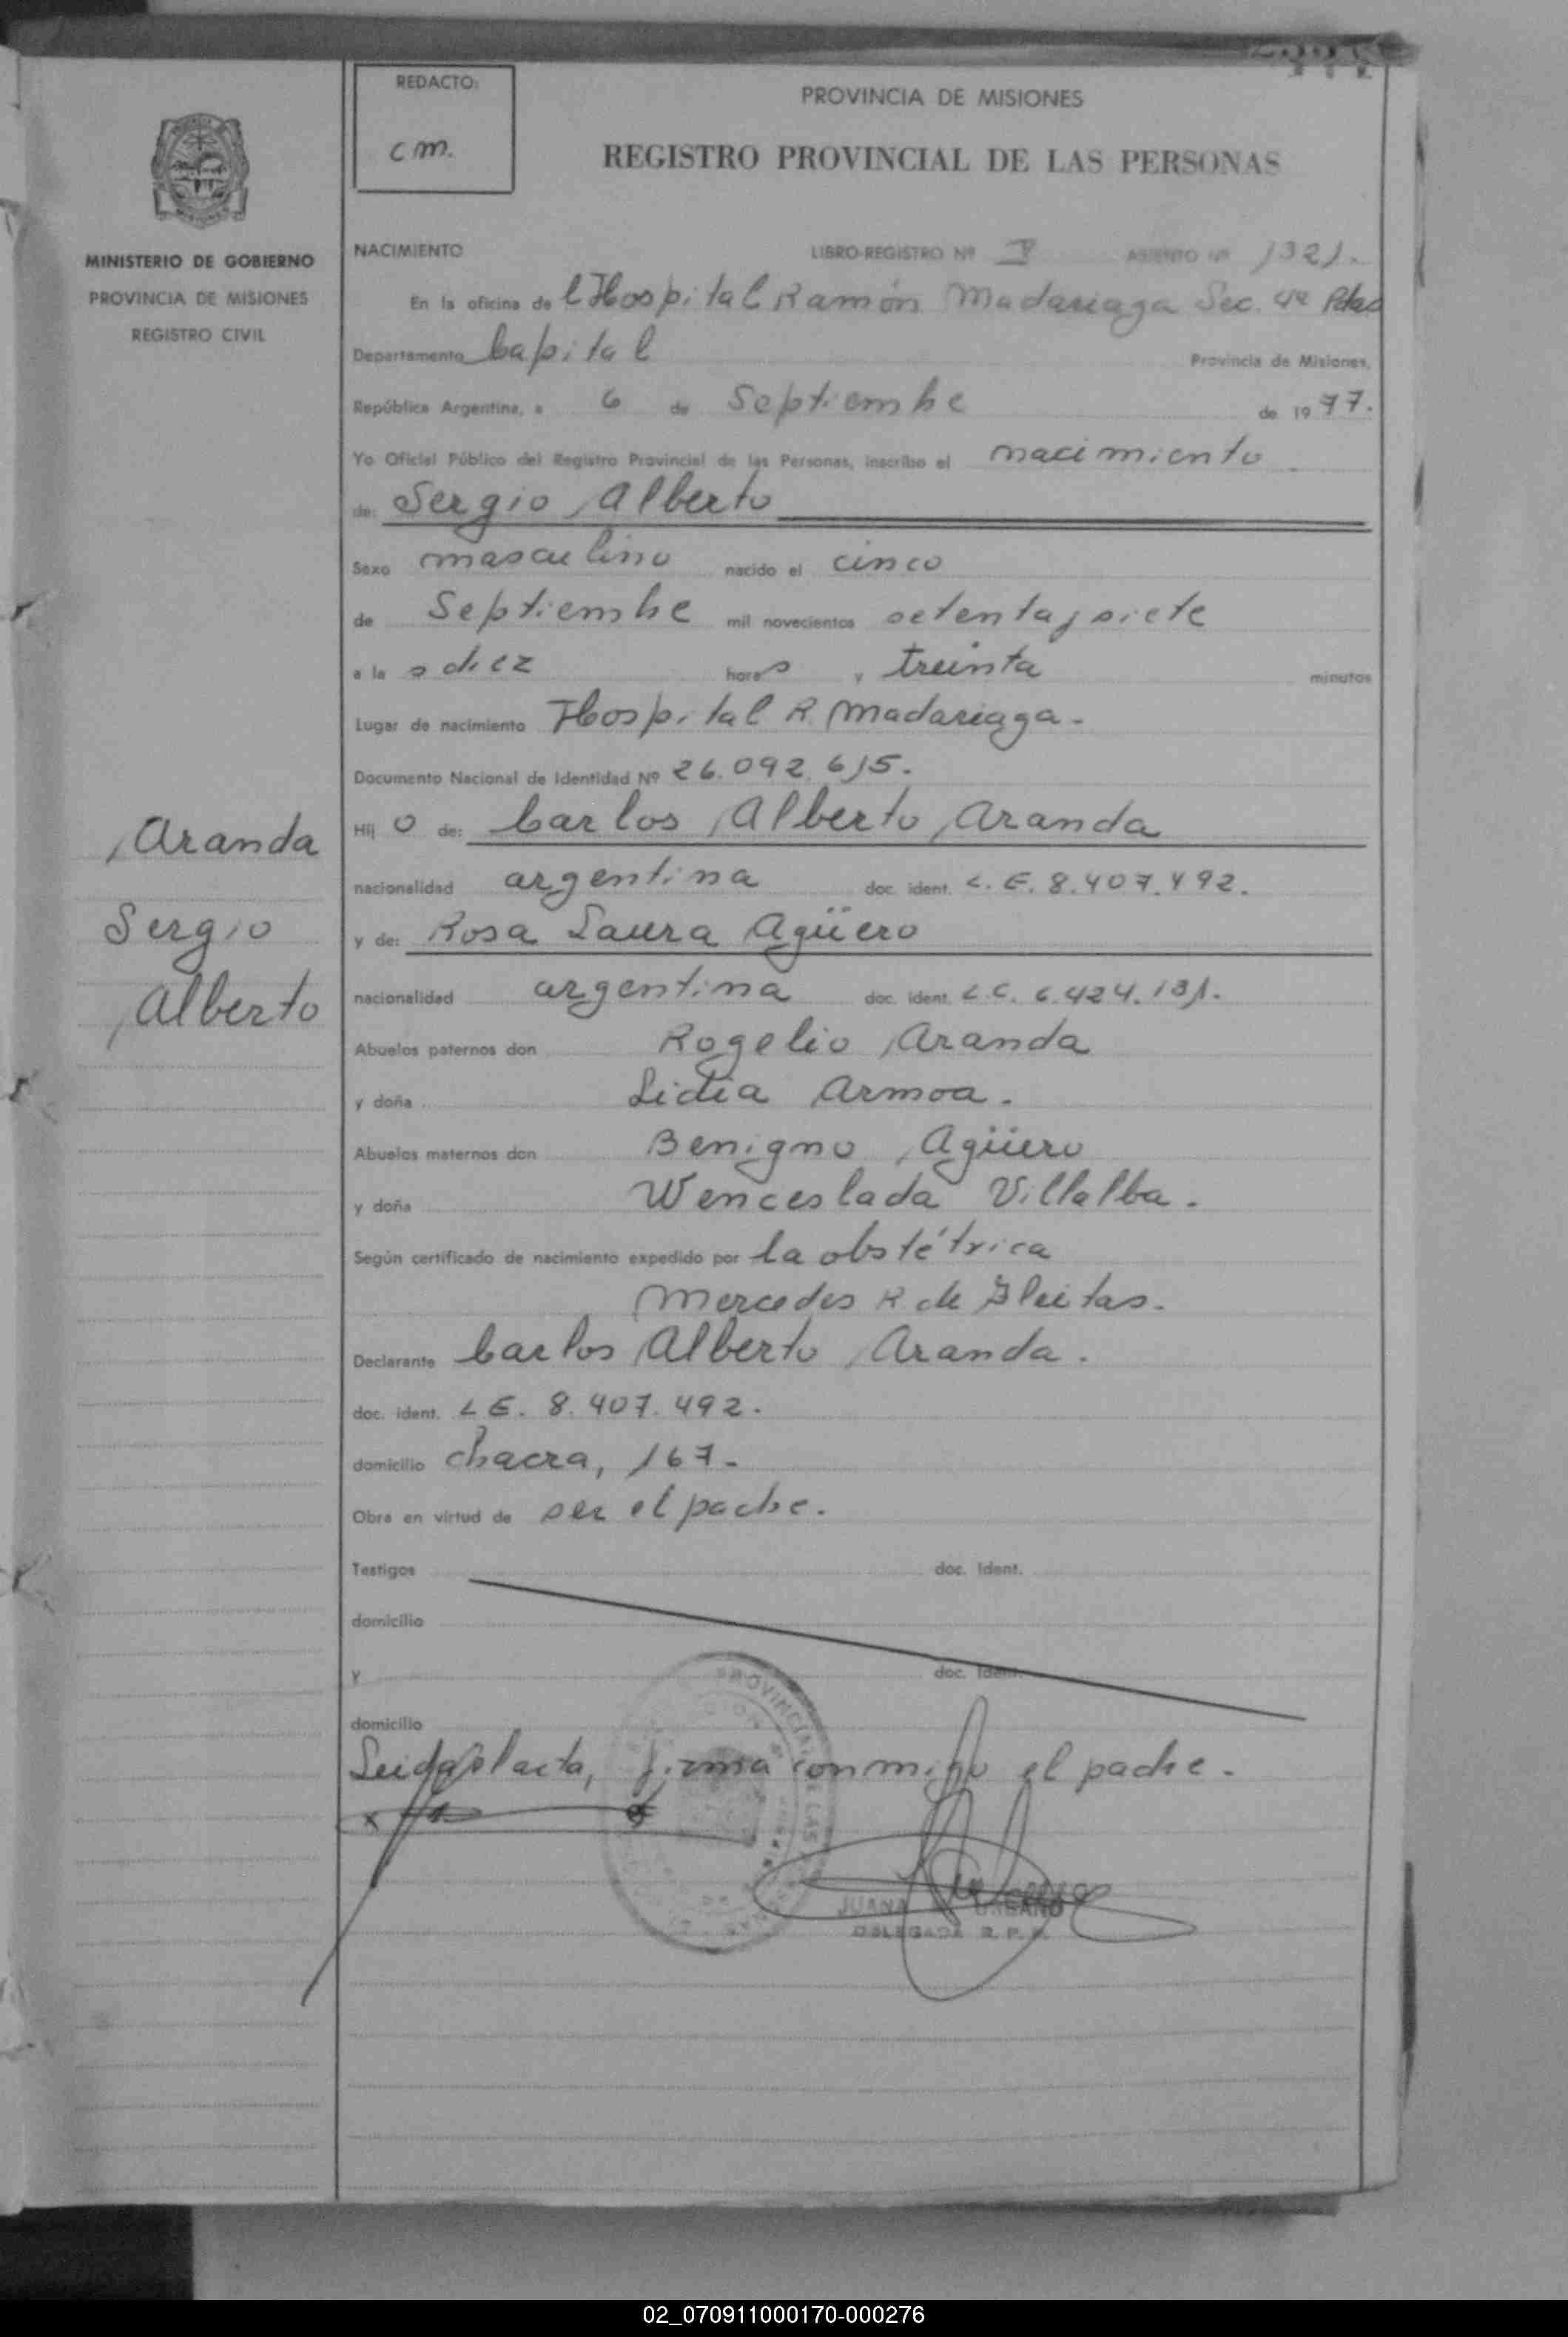 REDACTO:
cm.
PROVINCIA DE MISIONES
REGISTRO PROVINCIAL DE LAS PERSONAS
MINISTERIO DE GOBIERNO
PROVINCIA DE MISIONES
REGISTRO CIVIL
NACIMIENTO LIBRO-REGISTRO Nº V ASIENTO Nº 1321.
En la oficina de l Hospital Ramón Madariaga Sec. 4ª Pdas
Departamento Capital Provincia de Misiones,
República Argentina, a 6 de Septiembre de 1977.
Yo Oficial Público del Registro Provincial de las Personas, inscribo el nacimiento
de: Sergio Alberto
Sexo masculino nacido el cinco
de Septiembre mil novecientos setenta y siete
a la s diez horas y treinta minutos
Lugar de nacimiento Hospital R. Madariaga.
Documento Nacional de Identidad Nº 26.092.615.
Hij o de: Carlos Alberto Aranda
nacionalidad argentina doc. ident. L.E. 8.407.492.
y de: Rosa Laura Agüero
nacionalidad argentina doc. ident. L.C. 6.424.131.
Abuelos paternos don Rogelio Aranda
y doña Lidia Armoa.
Abuelos maternos don Benigno Agüero
y doña Wenceslada Villalba.
Según certificado de nacimiento expedido por la obstétrica
Mercedes R de Gleitas.
Declarante Carlos Alberto Aranda.
doc. ident. L E. 8.407.492.
domicilio chacra, 167.
Obra en virtud de ser el padre.
Testigos doc. ident.
domicilio
y doc. ident.
domicilio
Leida el acta, firma conmigo el padre.
x
JUANA URBANO
DELEGADA R. P. P.
Aranda
Sergio
Alberto
02_070911000170-000276